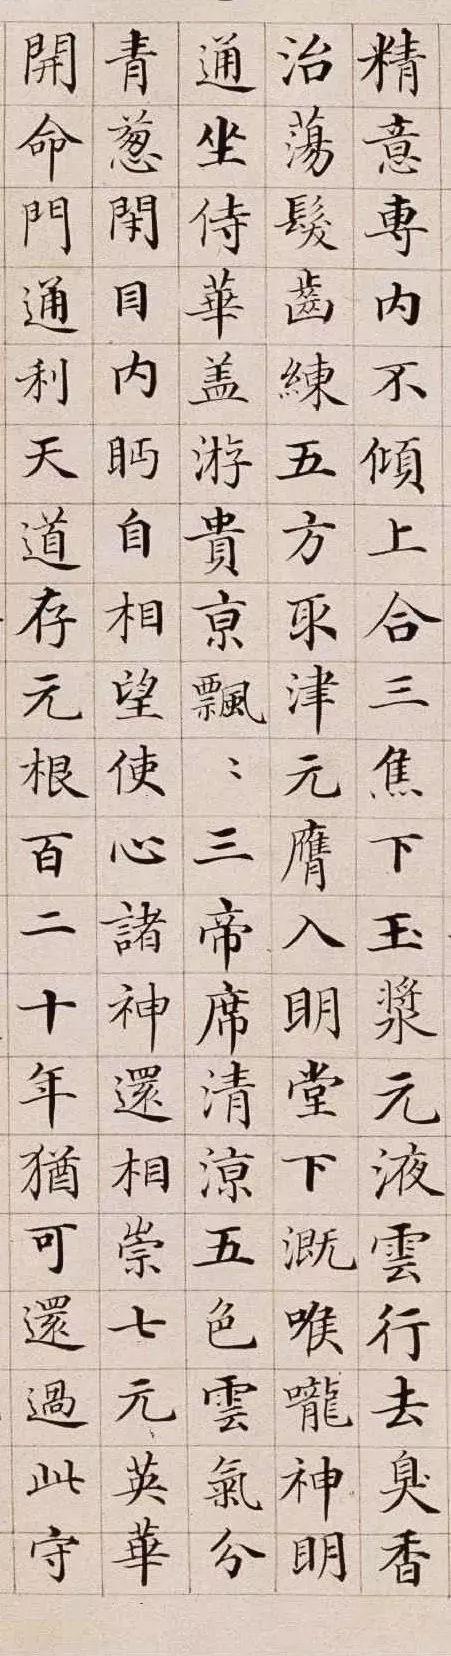 精意專内不傾上合三焦下玉漿元液雲行去臭香
治蕩髮齒練五方取津元膺入明堂下溉喉嚨神明
通坐侍華盖游貴京飄〻三帝席清涼五色雲氣分
青葱閇目内眄自相望使心諸神還相崇七元英華
開命門通利天道存元根百二十年猶可還過此守